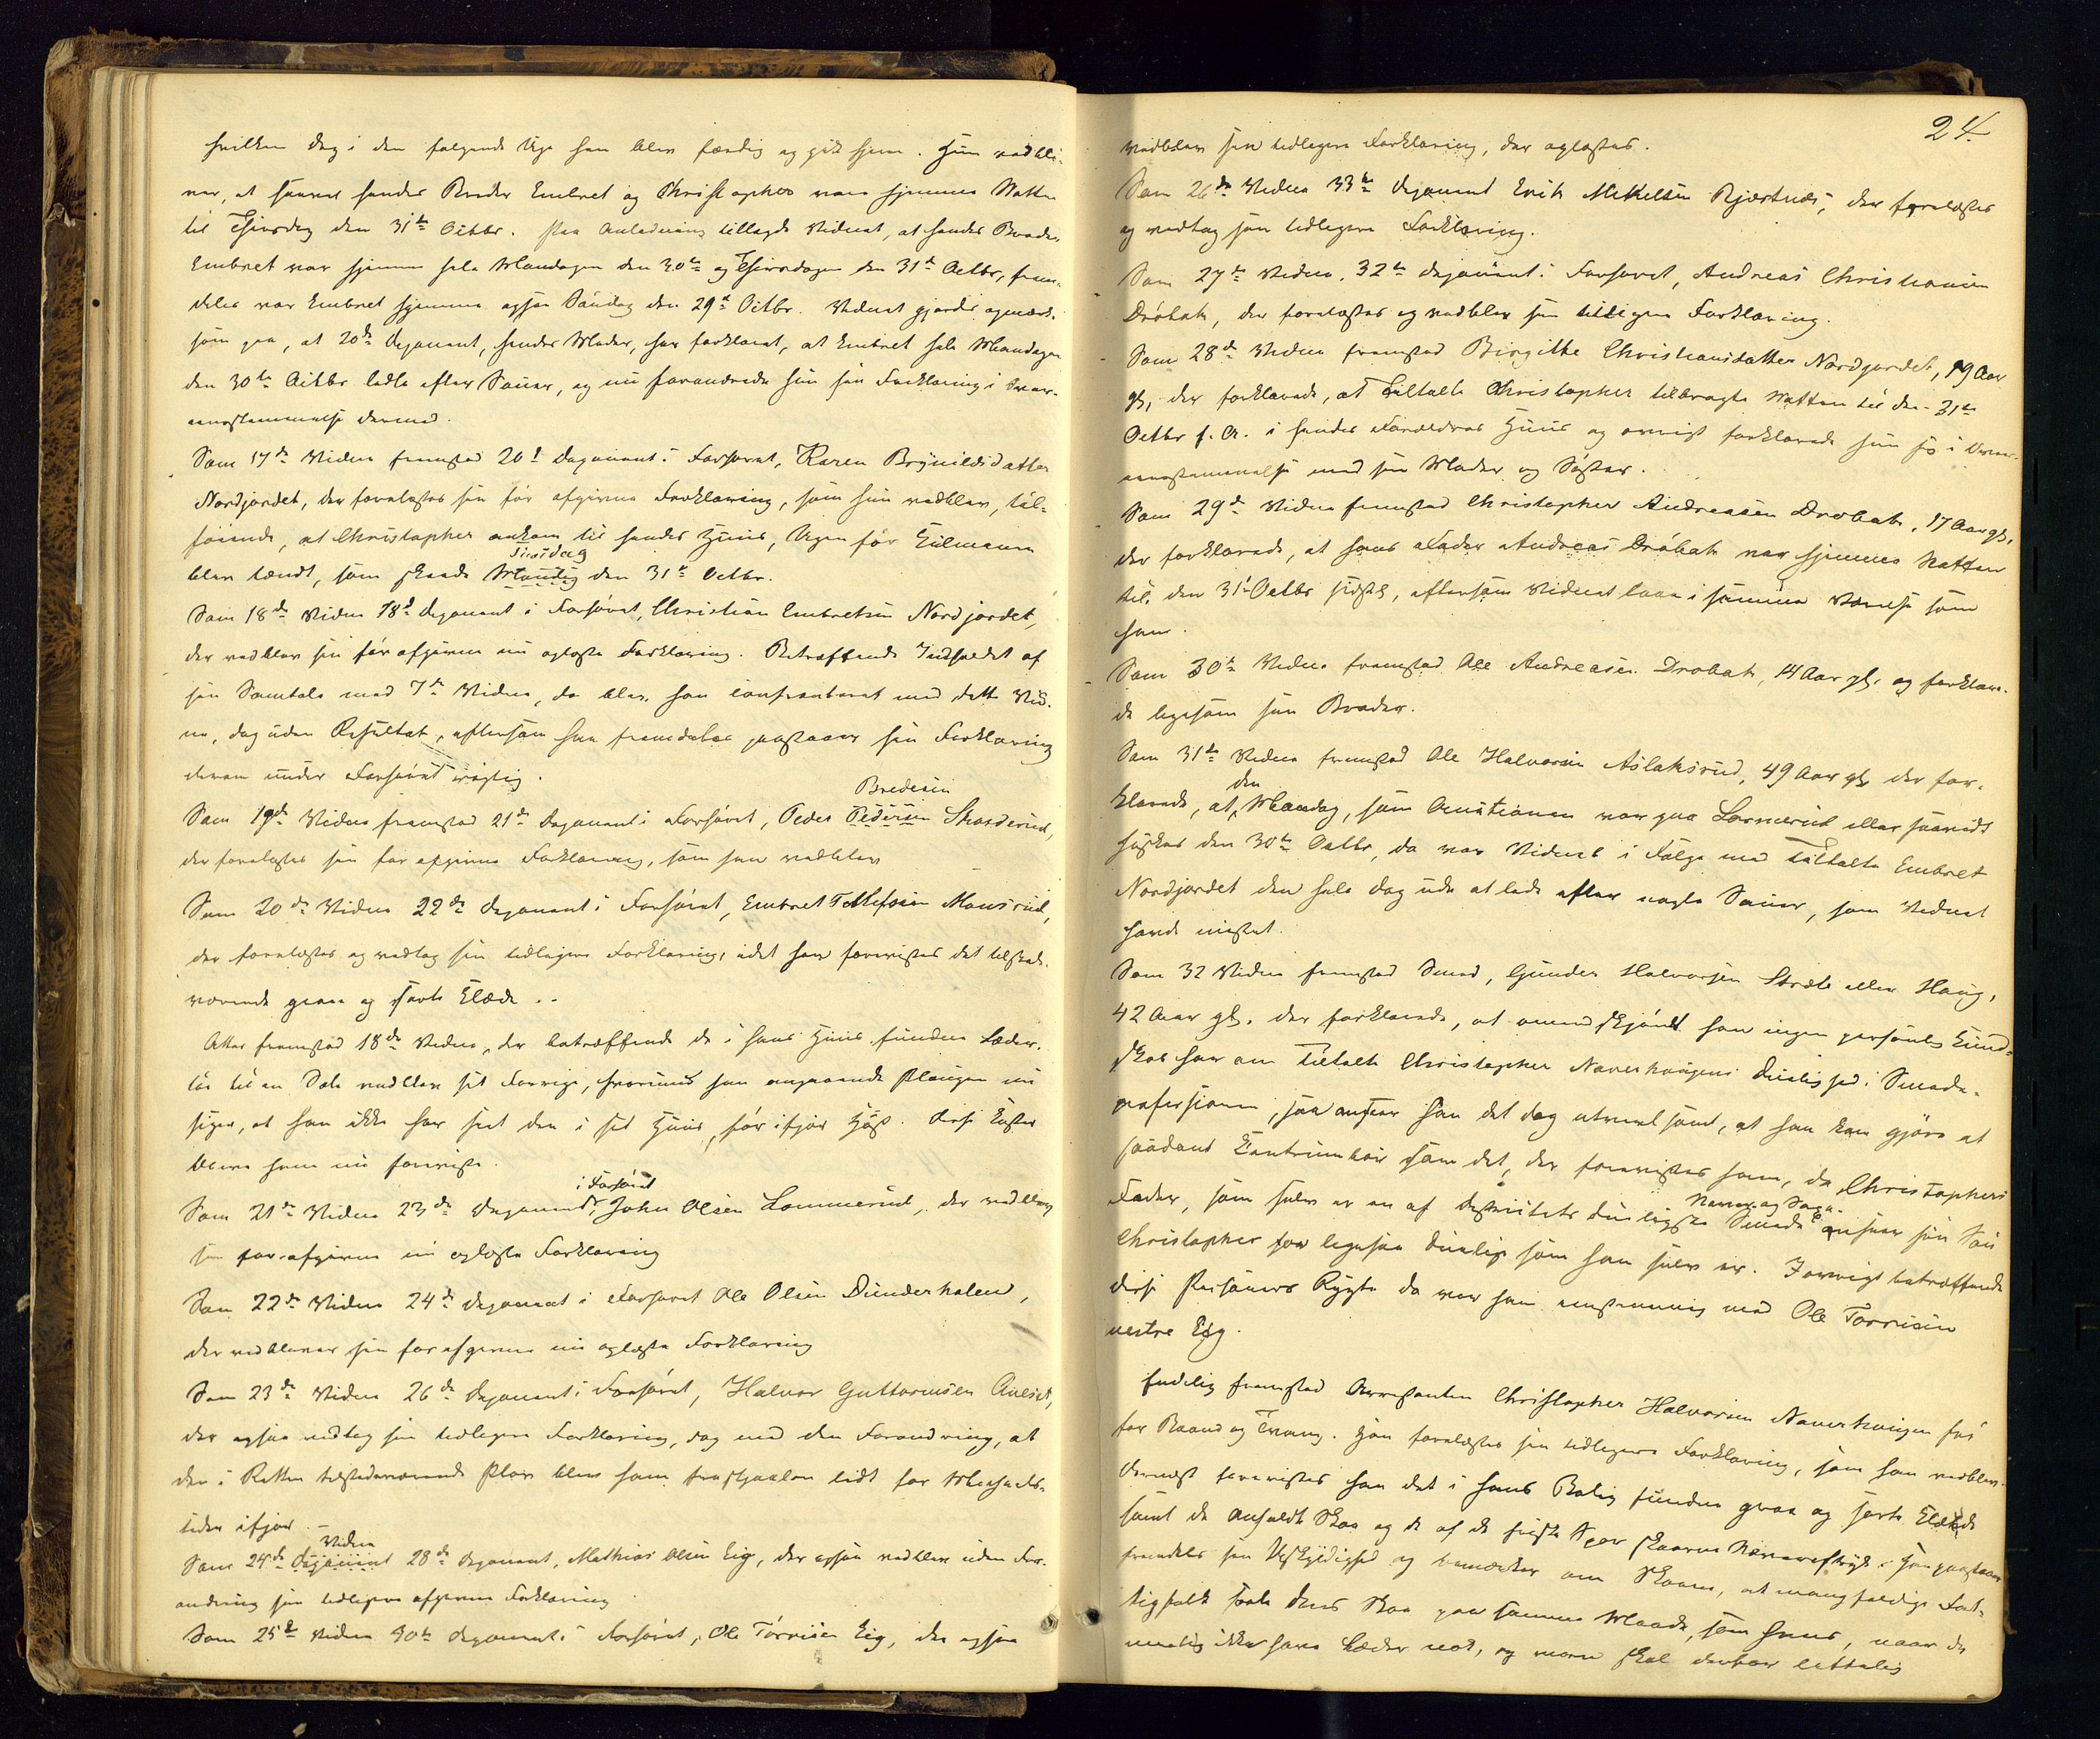 hvilken Dag i den følgende Uge han blev færdig og gik hjem. Hun vedbli-
ver, at saavel hendes Broder Embret og Christopher vare hjemme Natten
til Thirsdag den 31te Octbr. Paa Anledning tillagde Vidnet, at hendes Broder
Embret var hjemme hele Mandagen den 30te og Thirsdagen den 31te Octbr, frem-
deles var Embret hjemme ogsaa Søndag den 29de Octbr. Vidnet gjordes opmærk-
som paa, at 20de Deponent, hendes Moder, har forklaret, at Embret hele Mandagen
den 30te Octbr ledte efter Sauer, og nu forandrede hun sin Forklaring i Over-
eensstemmelse dermed.
Som 17de Vidne fremstod 20de Deponent i Forhøret, Karen Brynildsdatter
Nordjordet, der forelæstes sin før afgivne Forklaring, som hun vedblev, til-
føiende, at Christopher ankom til hendes Huus, Ugen før Eilmanen
Tirsdag
blev tændt, som skeede Mandag den 31te Octbr.
Som 18de Vidne 18de Deponent i Forhøret, Christian Embretsen Nordjordet,
der vedblev sin før afgivne nu oplæste Forklaring. Betræffende Indholdet af
sin Samtale med 7de Vidne, da blev han confronteret med dette Vid-
ne, dog uden Resultat, eftersom han fremdeles paastaaer sin Forklaring
derom under Forhøret rigtig.
Bredesen
Som 19de Vidne fremstod 21de Deponent i Forhøret, Peder Pedersen Skarderud,
der forelæstes sin før afgivne Forklaring, som han vedblev
Som 20de Vidne 22de Deponent i Forhøret, Embret Tollefsen Monsrud,
der forelæstes og vedtog sin tidligere Forklaring, idet han forevistes det tilstede-
værende graae og sorte Klæde.
Atter fremstod 18de Vidne, der betræffende de i hans Huus fundne Læder-
til en Sele vedblev sit Forrige, hvorimod han angaaende Plougen nu
siger, at han ikke har seet den i sit Huus, før ifjor Høst. Disse Koster
bleve ham nu foreviste.
i Forhøret
Som 21de Vidne 23de Deponent, John Olsen Lommerud, der vedblev
sin før afgivne nu oplæste Forklaring
Som 22de Vidne 24de Deponent i Forhøret Ole Olsen Dunderhalen,
der vedbliver sin før afgivne nu oplæste Forklaring
Som 23de Vidne 26de Deponent i Forhøret, Halvor Guttormsen Aulied,
der ogsaa vedtog sin tidligere Forklaring, dog med den Forandring, at
den i Retten tilstedeværende Plov blev ham frastjaalen lidt før Michaels-
tider ifjor.
Vidne
Som 24de Deponent 28de Deponent, Mathias Olsen Eig, der ogsaa vedblev uden For-
andring sin tidligere afgivne Forklaring
Som 25de Vidne 30te Deponent i Forhøret, Ole Torrisen Eig, der ogsaa
24
vedblev sin tidligere Forklaring, der oplæstes.
Som 26de Vidne 33te Deponent Erik Mikelsen Bjærtnæs, der forelæstes
og vedtog sin tidligere Forklaring.
Som 27de Vidne, 32te Deponent i Forhøret, Andreas Christiansen
Drøbak, der forelæstes og vedblev sin tidligere Forklaring.
Som 28de Vidne fremstod Birgithe Christiansdatter Nordjordet, 19 Aar
gl, der forklarede, at Tiltalte Christopher tilbragte Natten til den 31te
Octbr f. A. i hendes Forældres Huus og øvrigt forklarede hun sig i Over-
eensstemmelse med sin Moder og Søster.
Som 29de Vidne fremstod Christopher Andreasen Drøbak, 17 Aar gl,
der forklarede, at hans Fader Andreas Drøbak var hjemme Natten
til den 31te Octbr sidstl, eftersom Vidnet laae i samme Værelse som
ham.
Som 30te Vidne fremstod Ole Andreasen Drøbak, 14 Aar gl. og forklare-
de ligesom sin Broder.
Som 31te Vidne fremstod Ole Halvorsen Aslaksrud, 49 Aar gl, der for-
den
klarede, at Mandag, som Auctionen var paa Lommerud eller saavidt
huskes den 30te Octbr, da var Vidnet i Følge med Tiltalte Embret
Nordjordet den hele Dag ude at lede efter nogle Sauer, som Vidnet
havde mistet.
Som 32 Vidne fremstod Smed, Gunder Halvorsen Stræte eller Haug,
42 Aar gl. der forklarede, at omendskjøndt han ingen personlig Kund-
skab har om Tiltalte Christopher Naverhaugens Duelighed i Smede-
professionen, saa anseer han det dog utvivlsomt, at han kan gjøre et
saadant Centrumboir som det, der forevistes ham, da Christophers
Naver og Sag-
Fader, som selv er en af Districtets dueligste Smede anseer sin Søn
Christopher for ligesaa duelig som han selv er. Forøvrigt betræffende
disse Personers Rygte da var han eenstemmig med Ole Torrisen
vestre Eig.
Endelig fremstod Arrestanten Christopher Halvorsen Naverhaugen fri
for Baand og Tvang. Han forelæstes sin tidligere Forklaring, som han vedblev.
Dernæst forevistes han det i hans Bolig fundne graae og sorte Klæde
samt de anholdte Skoe og de af de friske Spor skaarne Næveraftryk. Han paastaaer
fremdeles sin Uskyldighed og bemærker om Skoene, at mangfoldige Fat-
tigfolk saale deres Skoe paa samme Maade, som hans, naar de
nemlig ikke have Læder nok, og man skal derfor lettelig